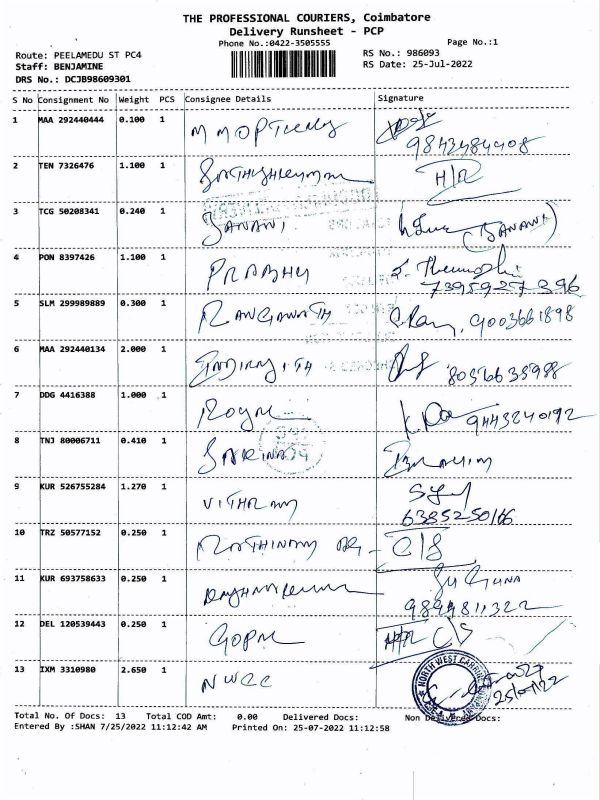 THE PROFESSIONAL COURIERS, Coimbatore
Delivery Runsheet - PCP
Phone No.:0422-3505555
Page No.:1
Route: PEELAMEDU ST PC4
RS No.: 986093
Staff: BENJAMINE
RS Date: 25-Jul-2022
DRS No.: DCJB98609301
S No Consignment No Weight PCS Consignee Details Signature
1 MAA 292440444 0.100 1
9843484408
2 TEN 7326476 1.100 1 H/R
3 TCG 50208341 0.240 1 JANANI (JANANI)
4 PON 8397426 1.100 1 PRABHU
7395927396
5 SLM 299989889 0.300 1 RANGANATH 9003661898
6 MAA 292440134 2.000 1 INDIRAJITH 8056635988
7 DDG 4416388 1.000 1 9443240192
8 TNJ 80006711 0.410 1
9 KUR 526755284 1.270 1
6385250166
10 TRZ 50577152 0.250 1 C/S
11 KUR 693758633 0.250 1
9894811322
12 DEL 120539443 0.250 1 GOPAL H/R C/S
13 IXM 3310980 2.650 1 NWCC
NORTH WEST
25/07/22
Total No. Of Docs: 13 Total COD Amt: 0.00 Delivered Docs: Non Delivered Docs:
Entered By :SHAN 7/25/2022 11:12:42 AM Printed On: 25-07-2022 11:12:58